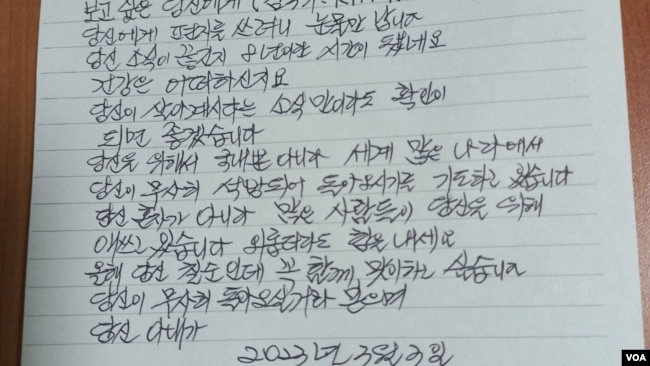 보고 싶은 당신에게
당신에게 편지를 쓰려니 눈물만 납니다
당신 소식이 끊긴지 8년이란 시간이 됐네요
건강은 어떠하신지요
당신이 살아계시다는 소식만이라도 확인이
되면 좋겠습니다
당신을 위해서 국내뿐 아니라 세계 많은 나라에서
당신이 무사히 석방되어 돌아오시기를 기도하고 있습니다
당신 혼자가 아니라 많은 사람들이 당신을 위해
애쓰고 있습니다 외롭더라도 힘을 내세요
올해 당신 칠순인데 꼭 함께 맞이하고 싶습니다
당신이 무사히 돌아오실거라 믿으며
당신 아내가
2023년 3월 3일
VOA